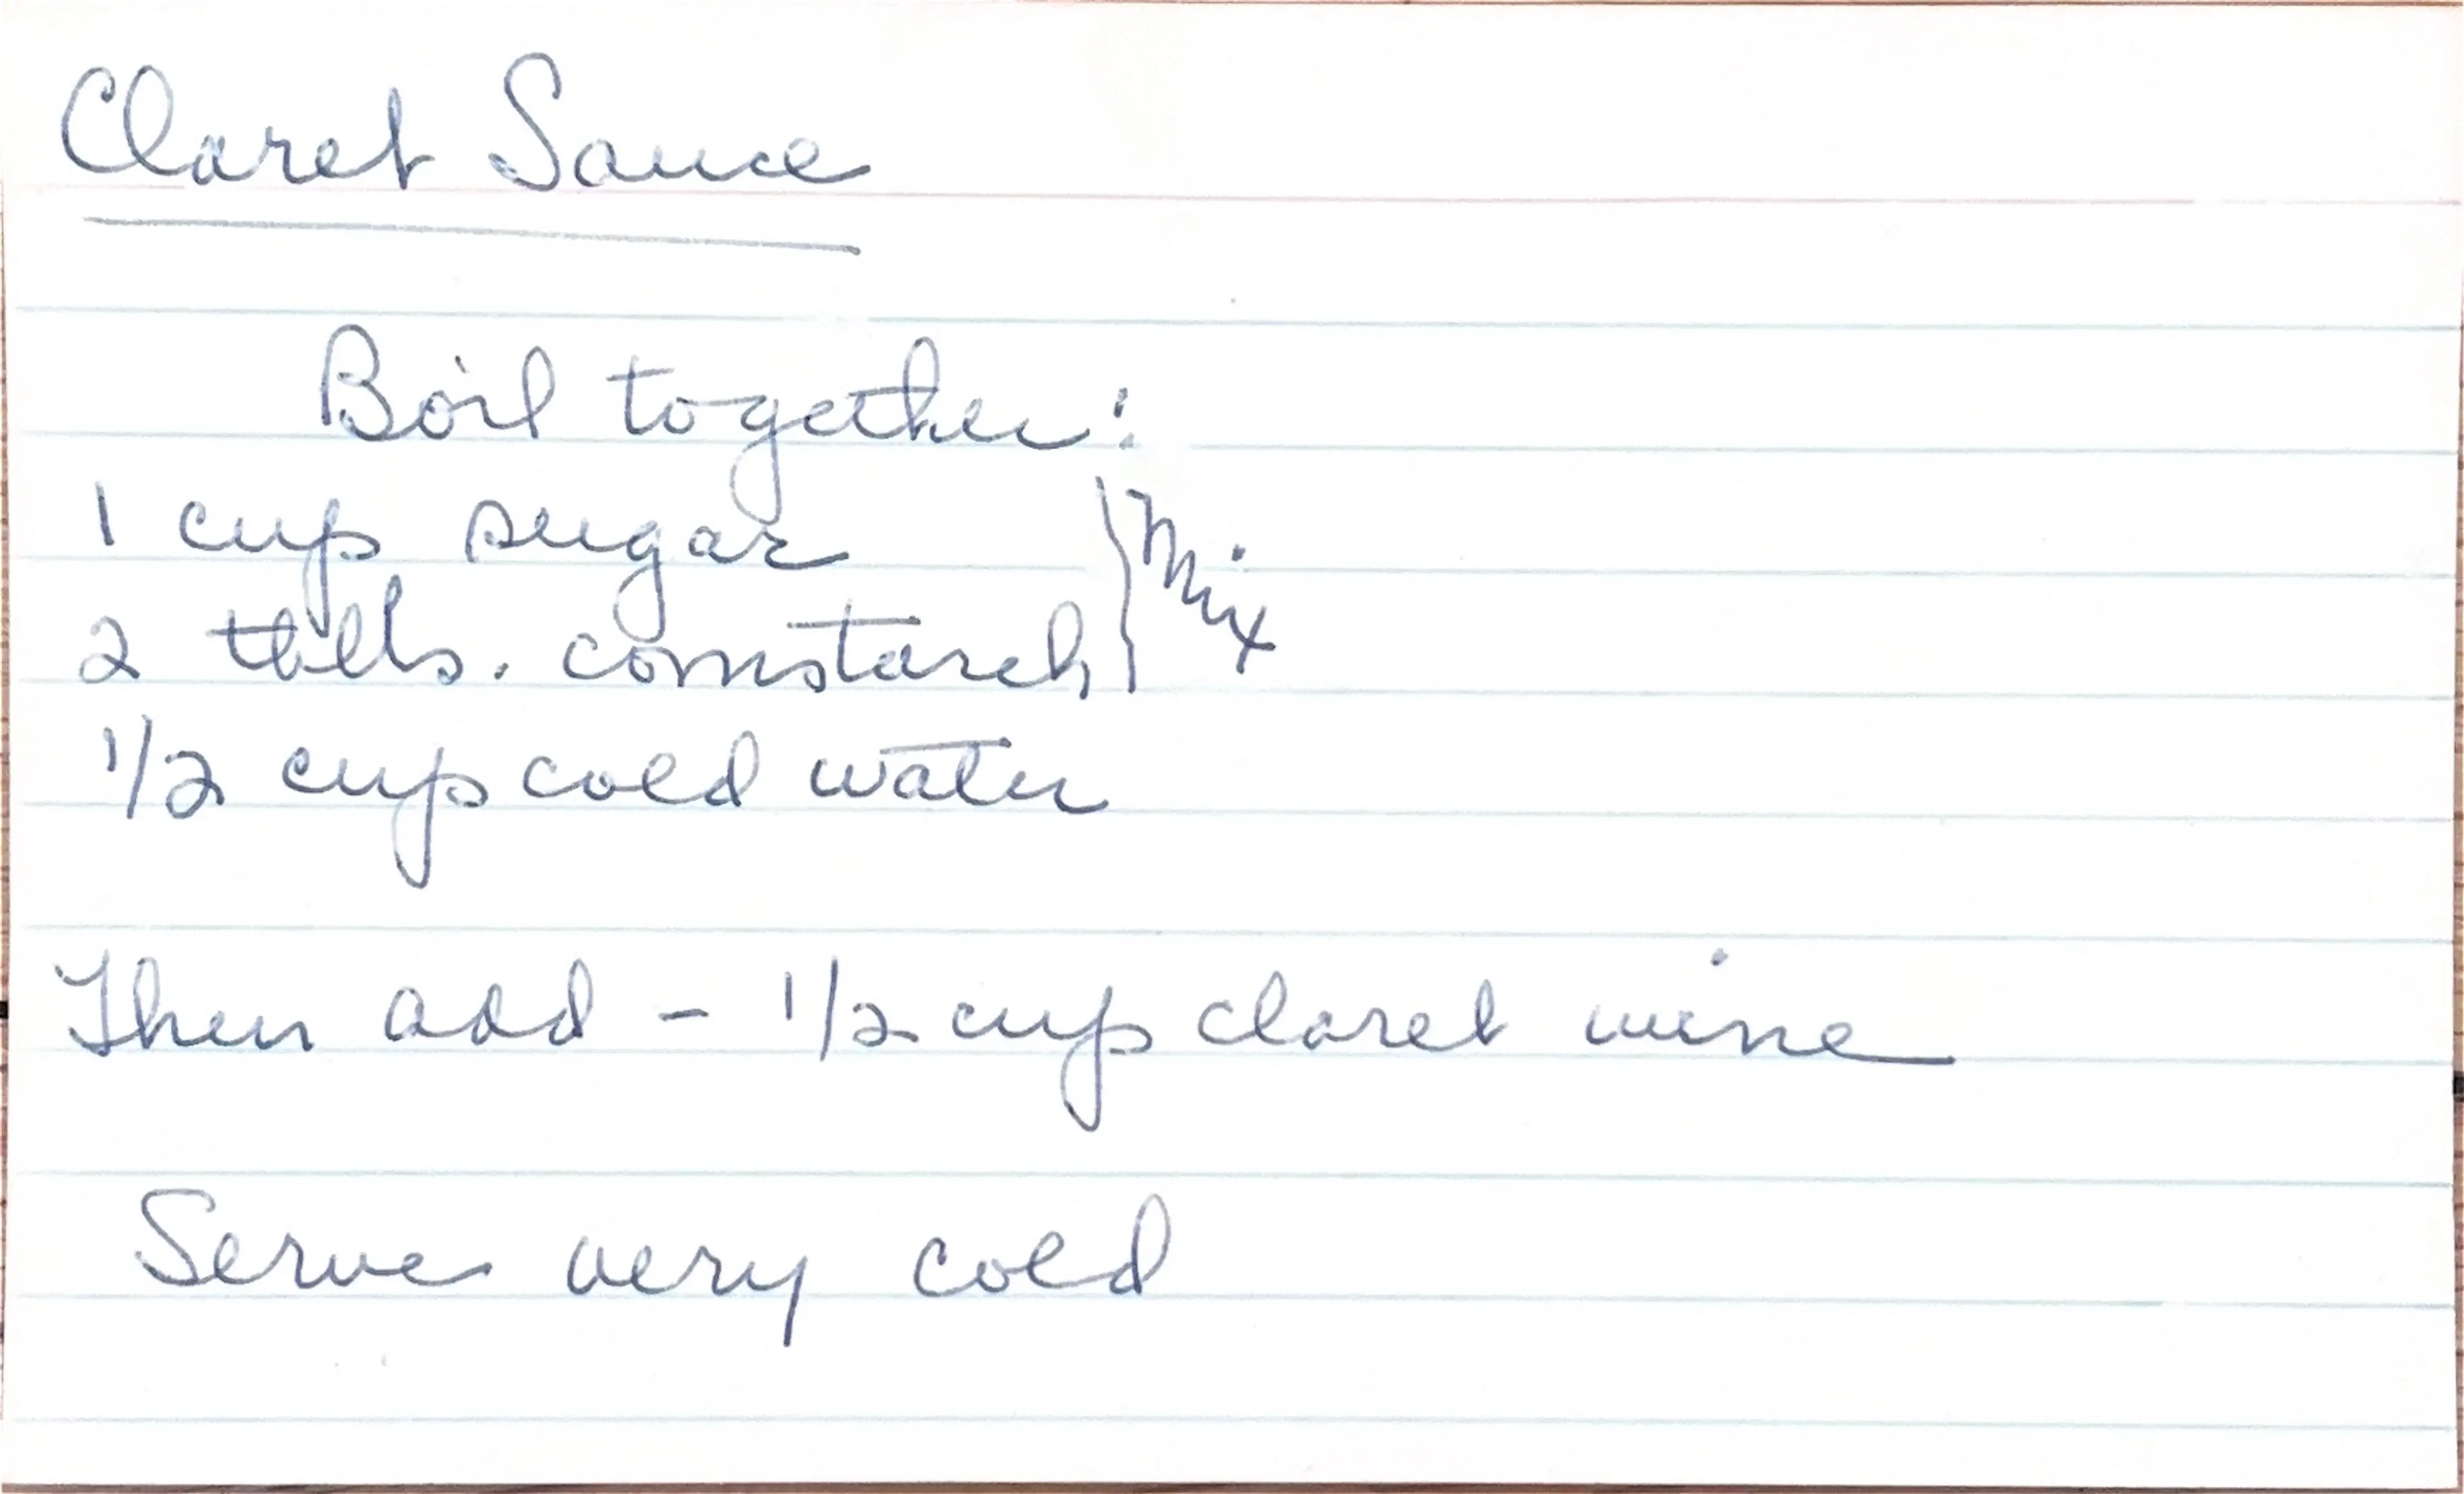 Claret Sauce
Boil together:
1 cup sugar
2 tbls. cornstarch } Mix
1/2 cup cold water
Then add - 1/2 cup claret wine
Serve very cold